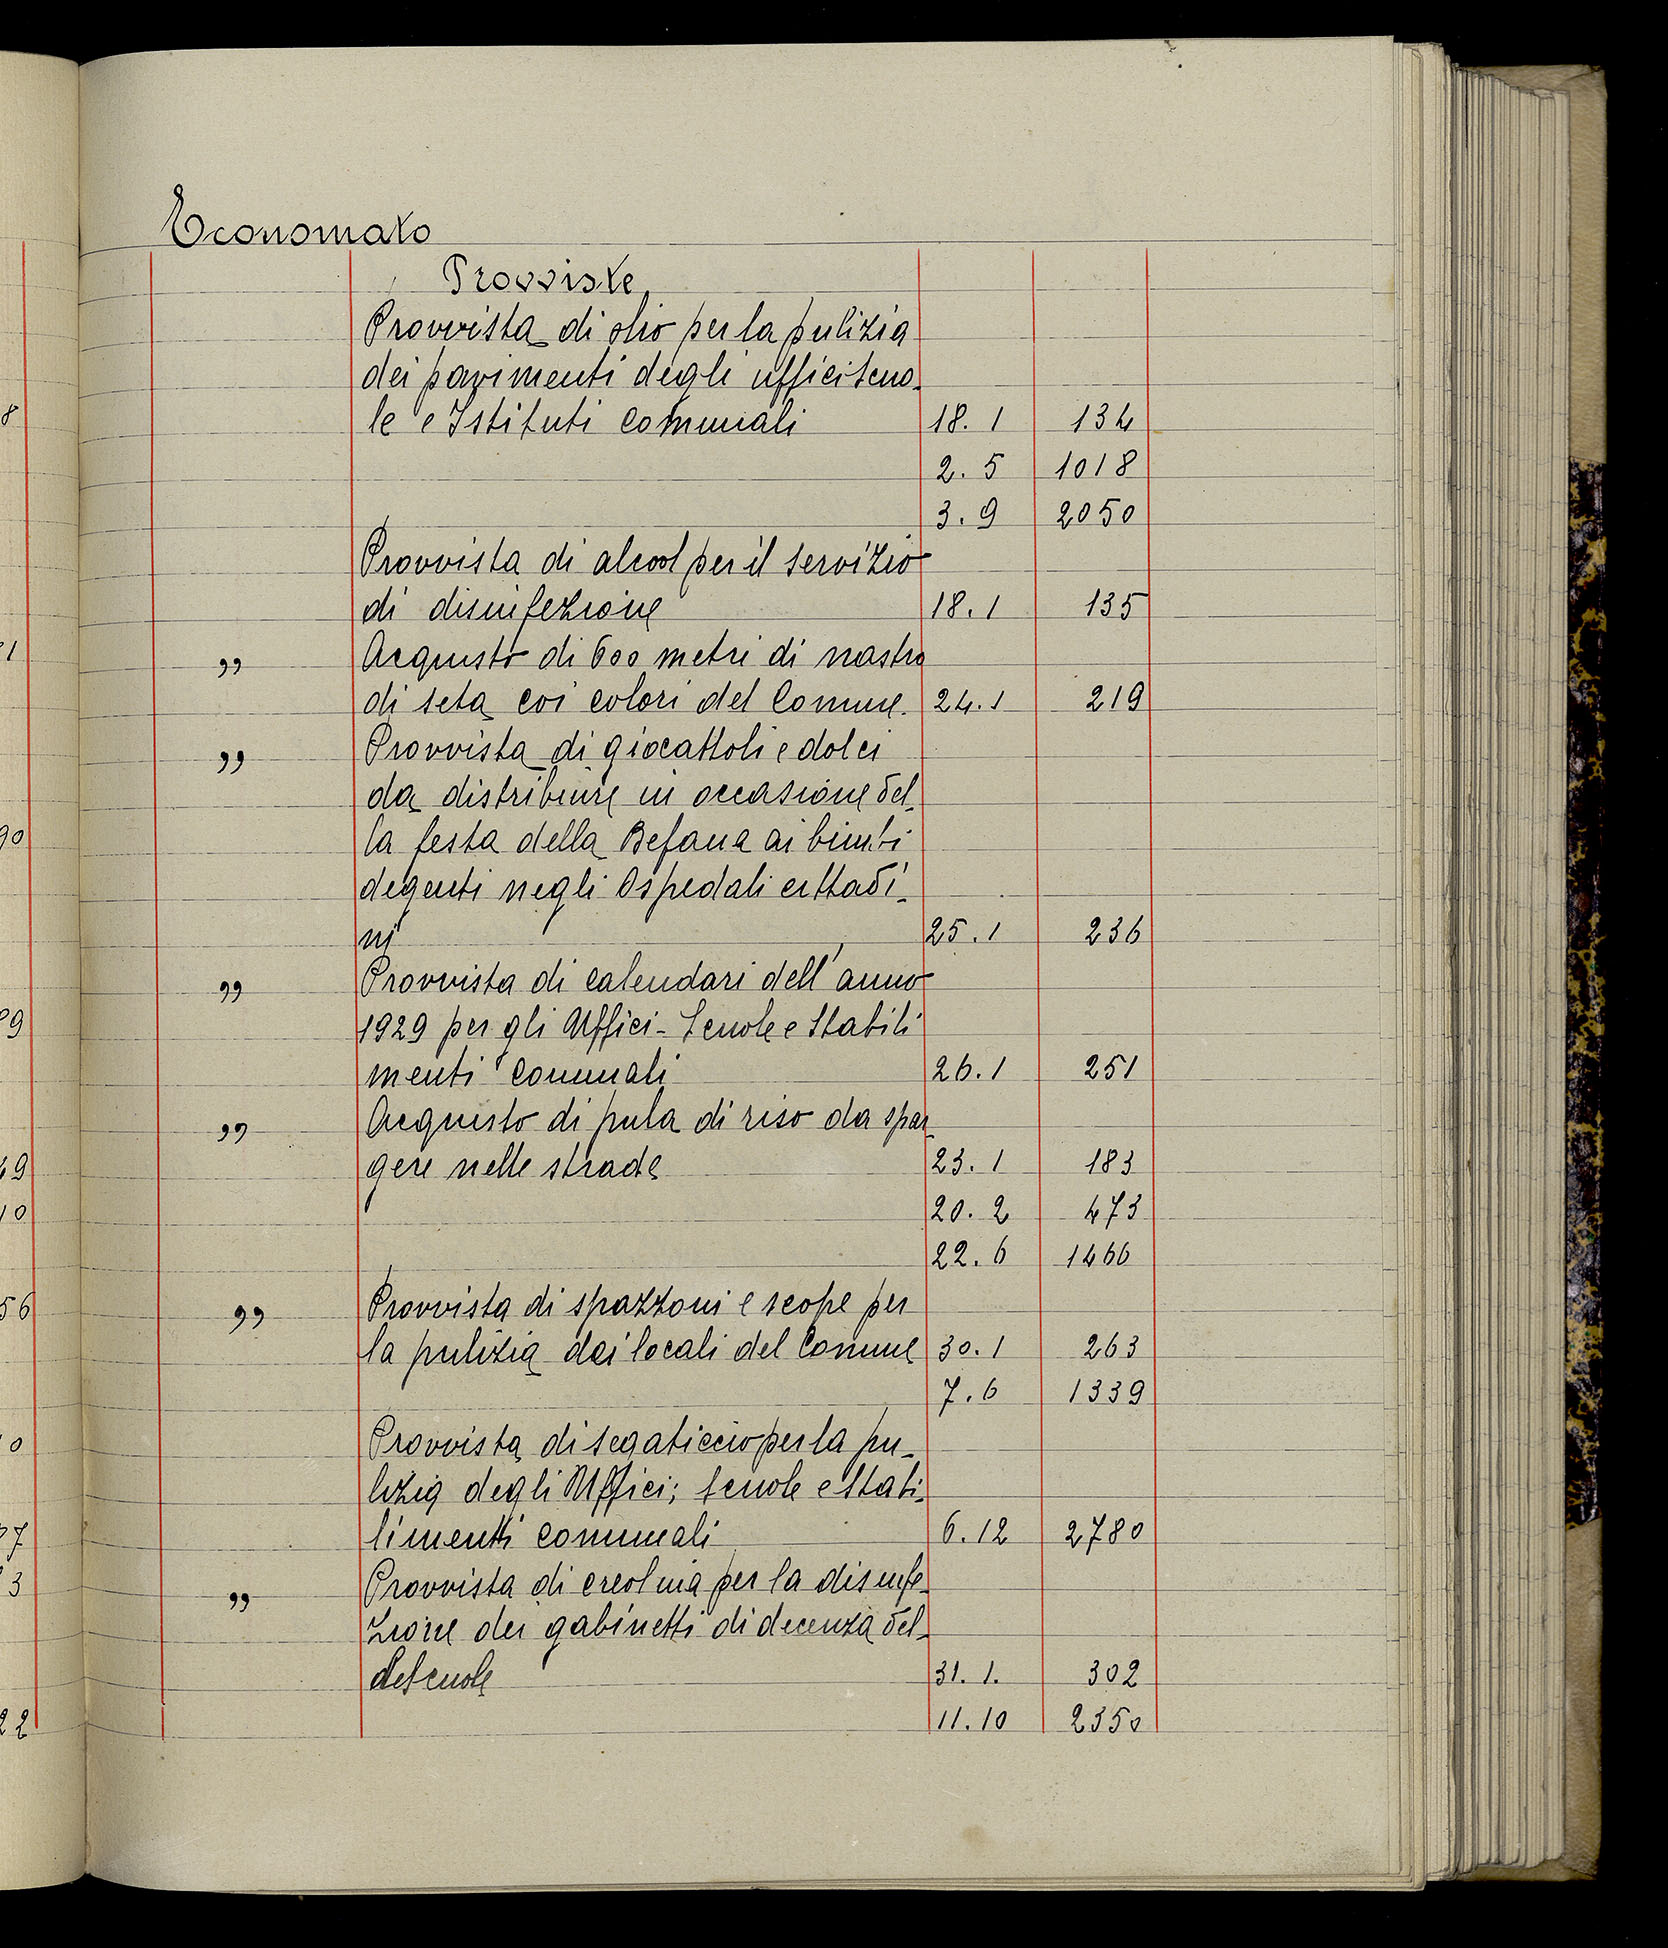 Economato
Provviste
Provvista di olio per la pulizia
dei pavimenti degli uffici scuo-
le e Istituti comunali 18. 1 134
2. 5 1018
3. 9 2050
Provvista di alcool per il servizio
di disinfezione 18. 1 135
" Acquisto di 600 metri di nastro
di seta coi colori del Comune. 24. 1 219
" Provvista di giocattoli e dolci
da distribuire in occasione del-
la festa della Befana ai bimbi
degenti negli Ospedali cittadi-
ni 25. 1 236
" Provvista di calendari dell'anno
1929 per gli Uffici - Scuole e Stabili
menti comunali 26. 1 251
" Acquisto di pula di riso da spar-
gere nelle strade 23. 1 183
20. 2 473
22. 6 1466
" Provvista di spazzoni e scope per
la pulizia dei locali del Comune 30. 1 263
7. 6 1339
Provvista di segaticcio per la pu-
lizia degli Uffici; scuole e Stabi-
limenti comunali 6. 12 2780
" Provvista di creolina per la disinfe-
zione dei gabinetti di decenza del-
le scuole 31. 1. 302
11. 10 2350
8
1
90
9
49
10
56
0
7
3
22